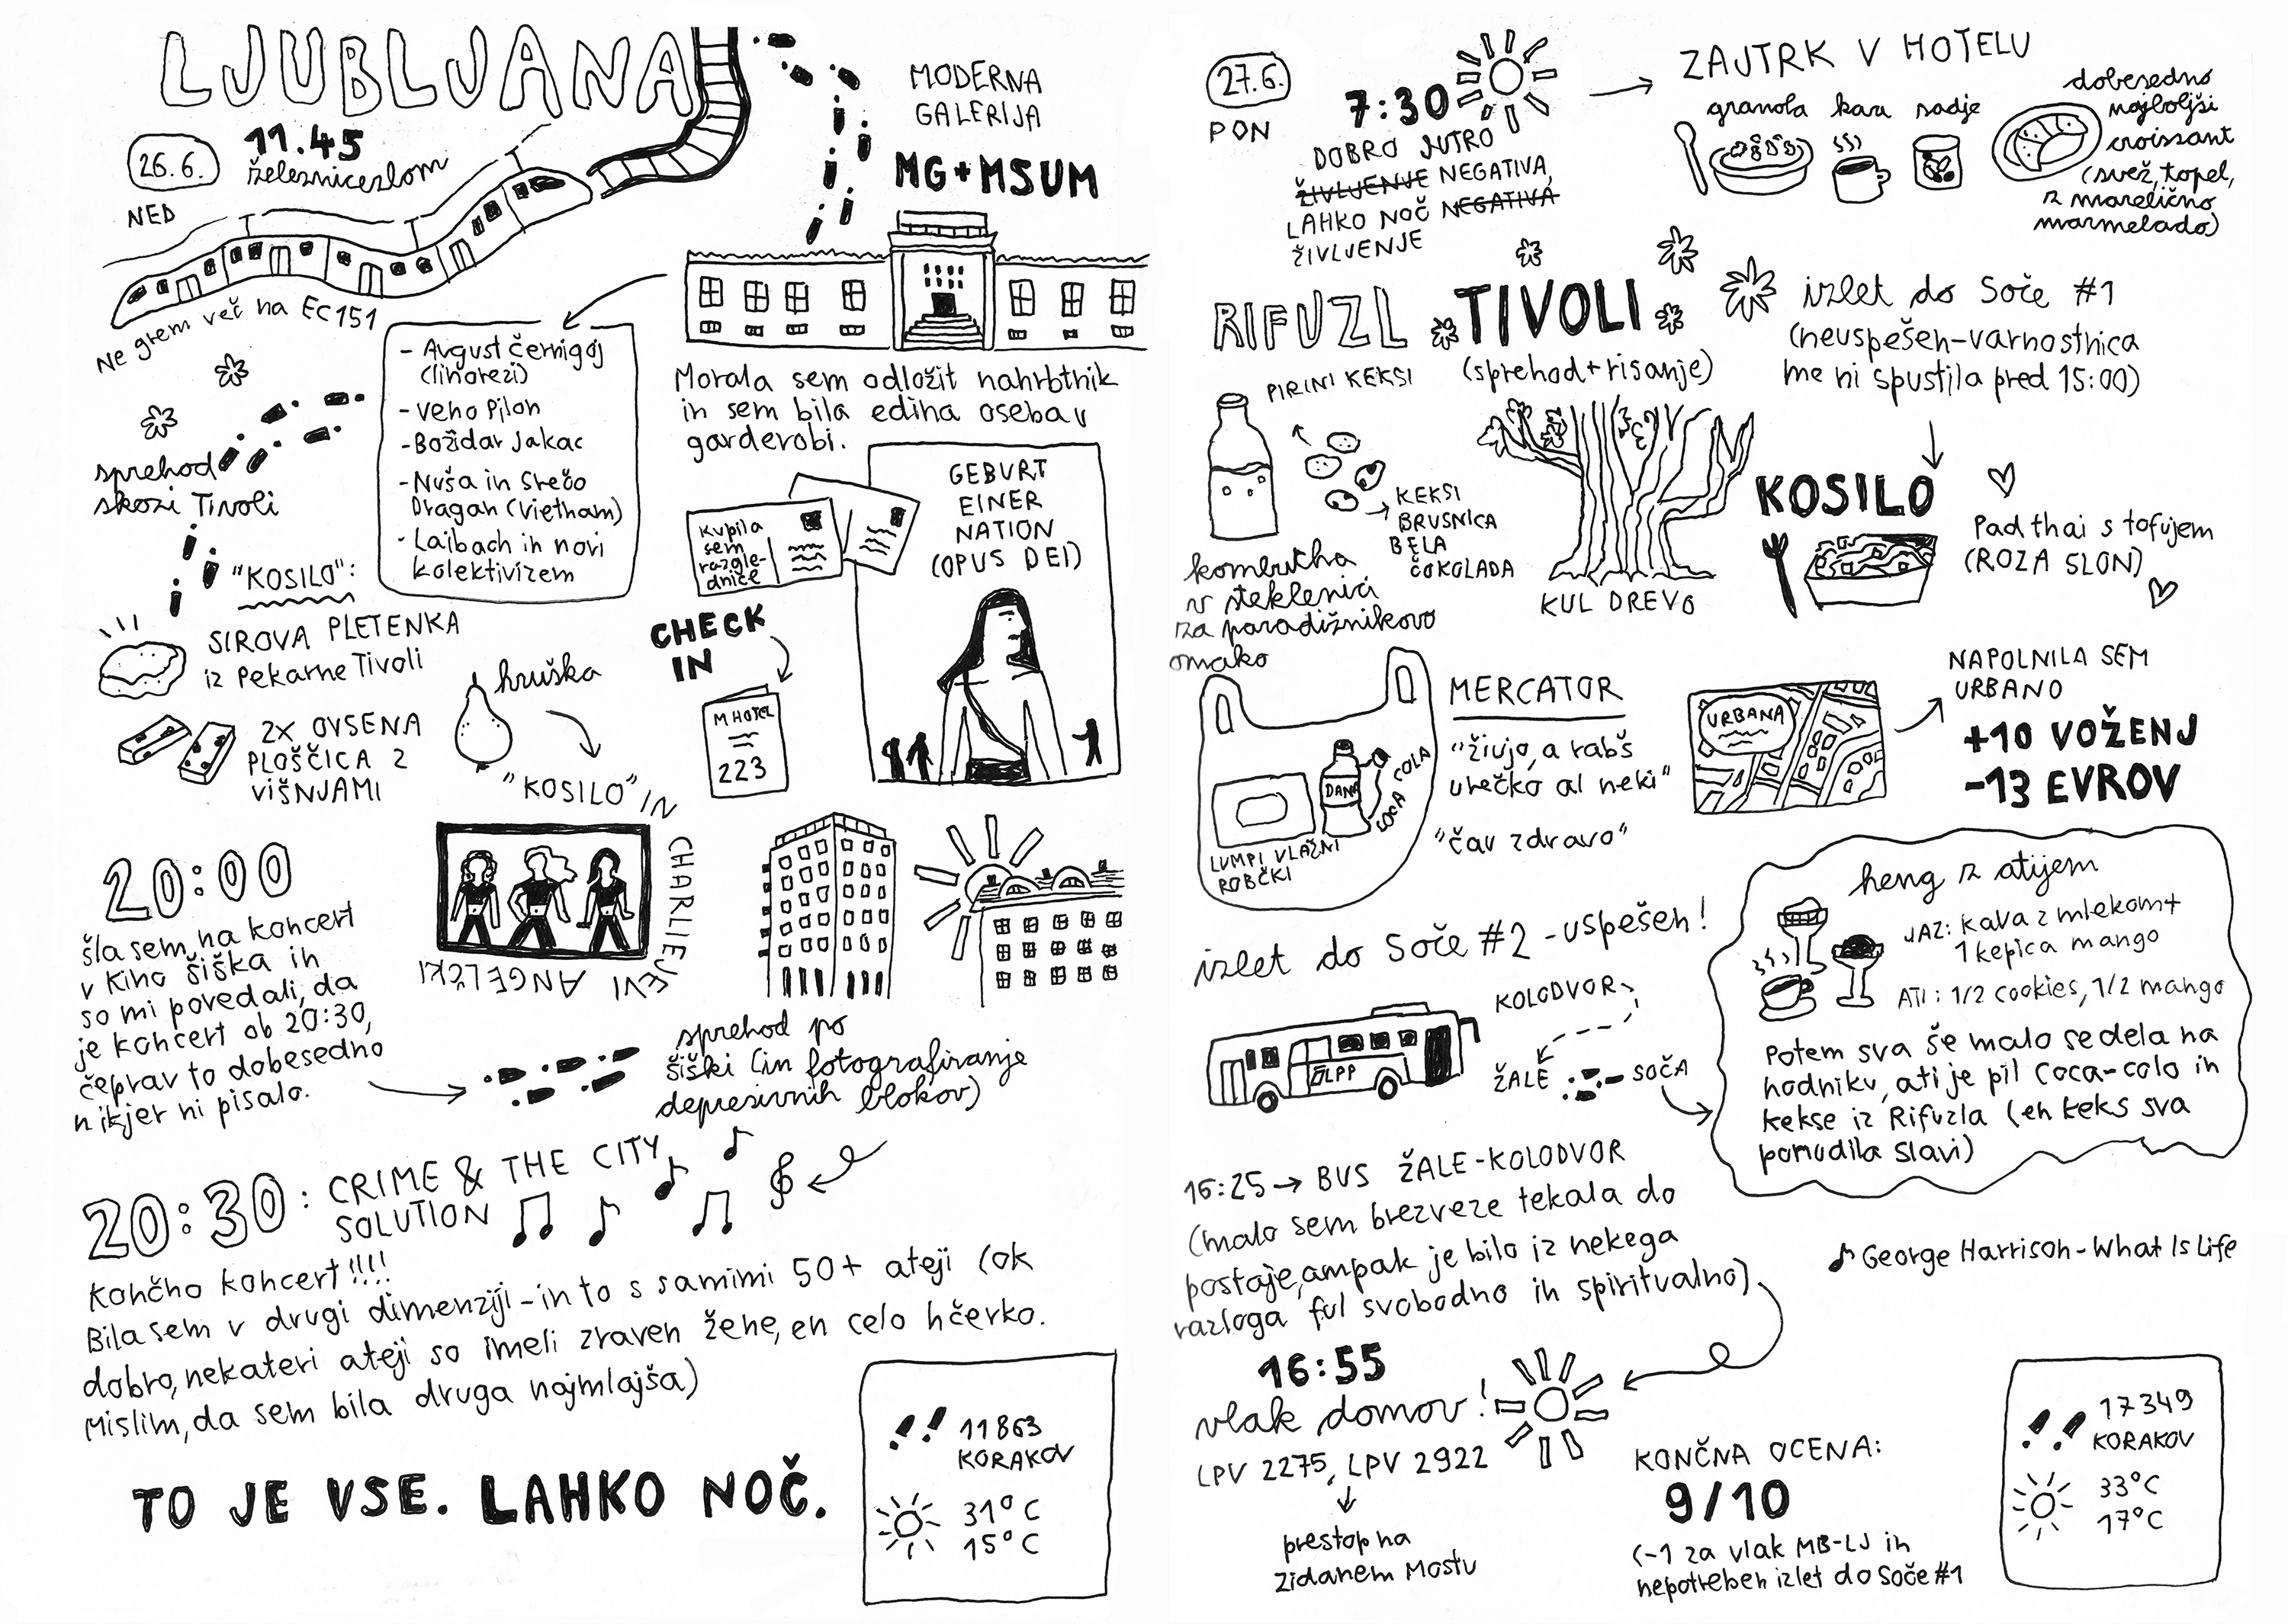 LJUBLJANA
26.6.
NED
11.45
železnicezlom
Ne grem več na EC151
MODERNA
GALERIJA
MG+MSUM
- Avgust Černigoj
(linorezi)
- Veno Pilon
- Božidar Jakac
- Nuša in Srečo
Dragan (Vietnam)
- Laibach in novi
kolektivizem
Morala sem odložit nahrbtnik
in sem bila edina oseba v
garderobi.
Kupila
sem
razgle-
dnice
GEBURT
EINER
NATION
(OPUS DEI)
sprehod
skozi Tivoli
"KOSILO":
SIROVA PLETENKA
iz Pekarne Tivoli
2X OVSENA
PLOŠČICA Z
VIŠNJAMI
hruška
CHECK
IN
M HOTEL
223
"KOSILO" IN
CHARLIEJEVI
ANGELČKI
20:00
šla sem na koncert
v Kino Šiška in
so mi povedali, da
je koncert ob 20:30,
čeprav to dobesedno
nikjer ni pisalo.
sprehod po
Šiški (in fotografiranje
depresivnih blokov)
20:30: CRIME & THE CITY
SOLUTION
Končno koncert!!!!
Bila sem v drugi dimenziji - in to s samimi 50+ ateji (ok
dobro, nekateri ateji so imeli zraven žene, en celo hčerko.
Mislim, da sem bila druga najmlajša)
TO JE VSE. LAHKO NOČ.
11863
KORAKOV
31°C
15°C
27.6.
PON
7:30
DOBRO JUTRO
ŽIVLJENJE NEGATIVA,
LAHKO NOČ NEGATIVA
ŽIVLJENJE
ZAJTRK V HOTELU
granola kava sadje
dobesedno
najboljši
croissant
(svež, topel,
z marelično
marmelado)
RIFUZL
PIRINI KEKSI
KEKSI
BRUSNICA
BELA
ČOKOLADA
kombucha
v steklenici
za paradižnikovo
omako
TIVOLI
(sprehod+risanje)
KUL DREVO
izlet do Soče #1
(neuspešen-varnostnica
me ni spustila pred 15:00)
KOSILO
Pad thai s tofujem
(ROZA SLON)
MERCATOR
"živjo, a rabš
vrečko al neki"
"čav zdravo"
LUMPI VLAŽNI
ROBČKI
DANA
COCA COLA
URBANA
NAPOLNILA SEM
URBANO
+10 VOŽENJ
-13 EVROV
izlet do Soče #2 - uspešen!
LPP
KOLODVOR
ŽALE
SOČA
heng z atijem
JAZ: kava z mlekom+
1 kepica mango
ATI: 1/2 cookies, 1/2 mango
Potem sva še malo sedela na
hodniku, ati je pil Coca-colo in
kekse iz Rifuzla (en keks sva
ponudila Slavi)
16:25 → BUS ŽALE-KOLODVOR
(malo sem brezveze tekala do
postaje, ampak je bilo iz nekega
razloga ful svobodno in spiritualno)
George Harrison - What Is Life
16:55
vlak domov!
LPV 2275, LPV 2922
prestop na
Zidanem Mostu
KONČNA OCENA:
9/10
(-1 za vlak MB-LJ in
nepotreben izlet do Soče #1
17349
KORAKOV
33°C
17°C